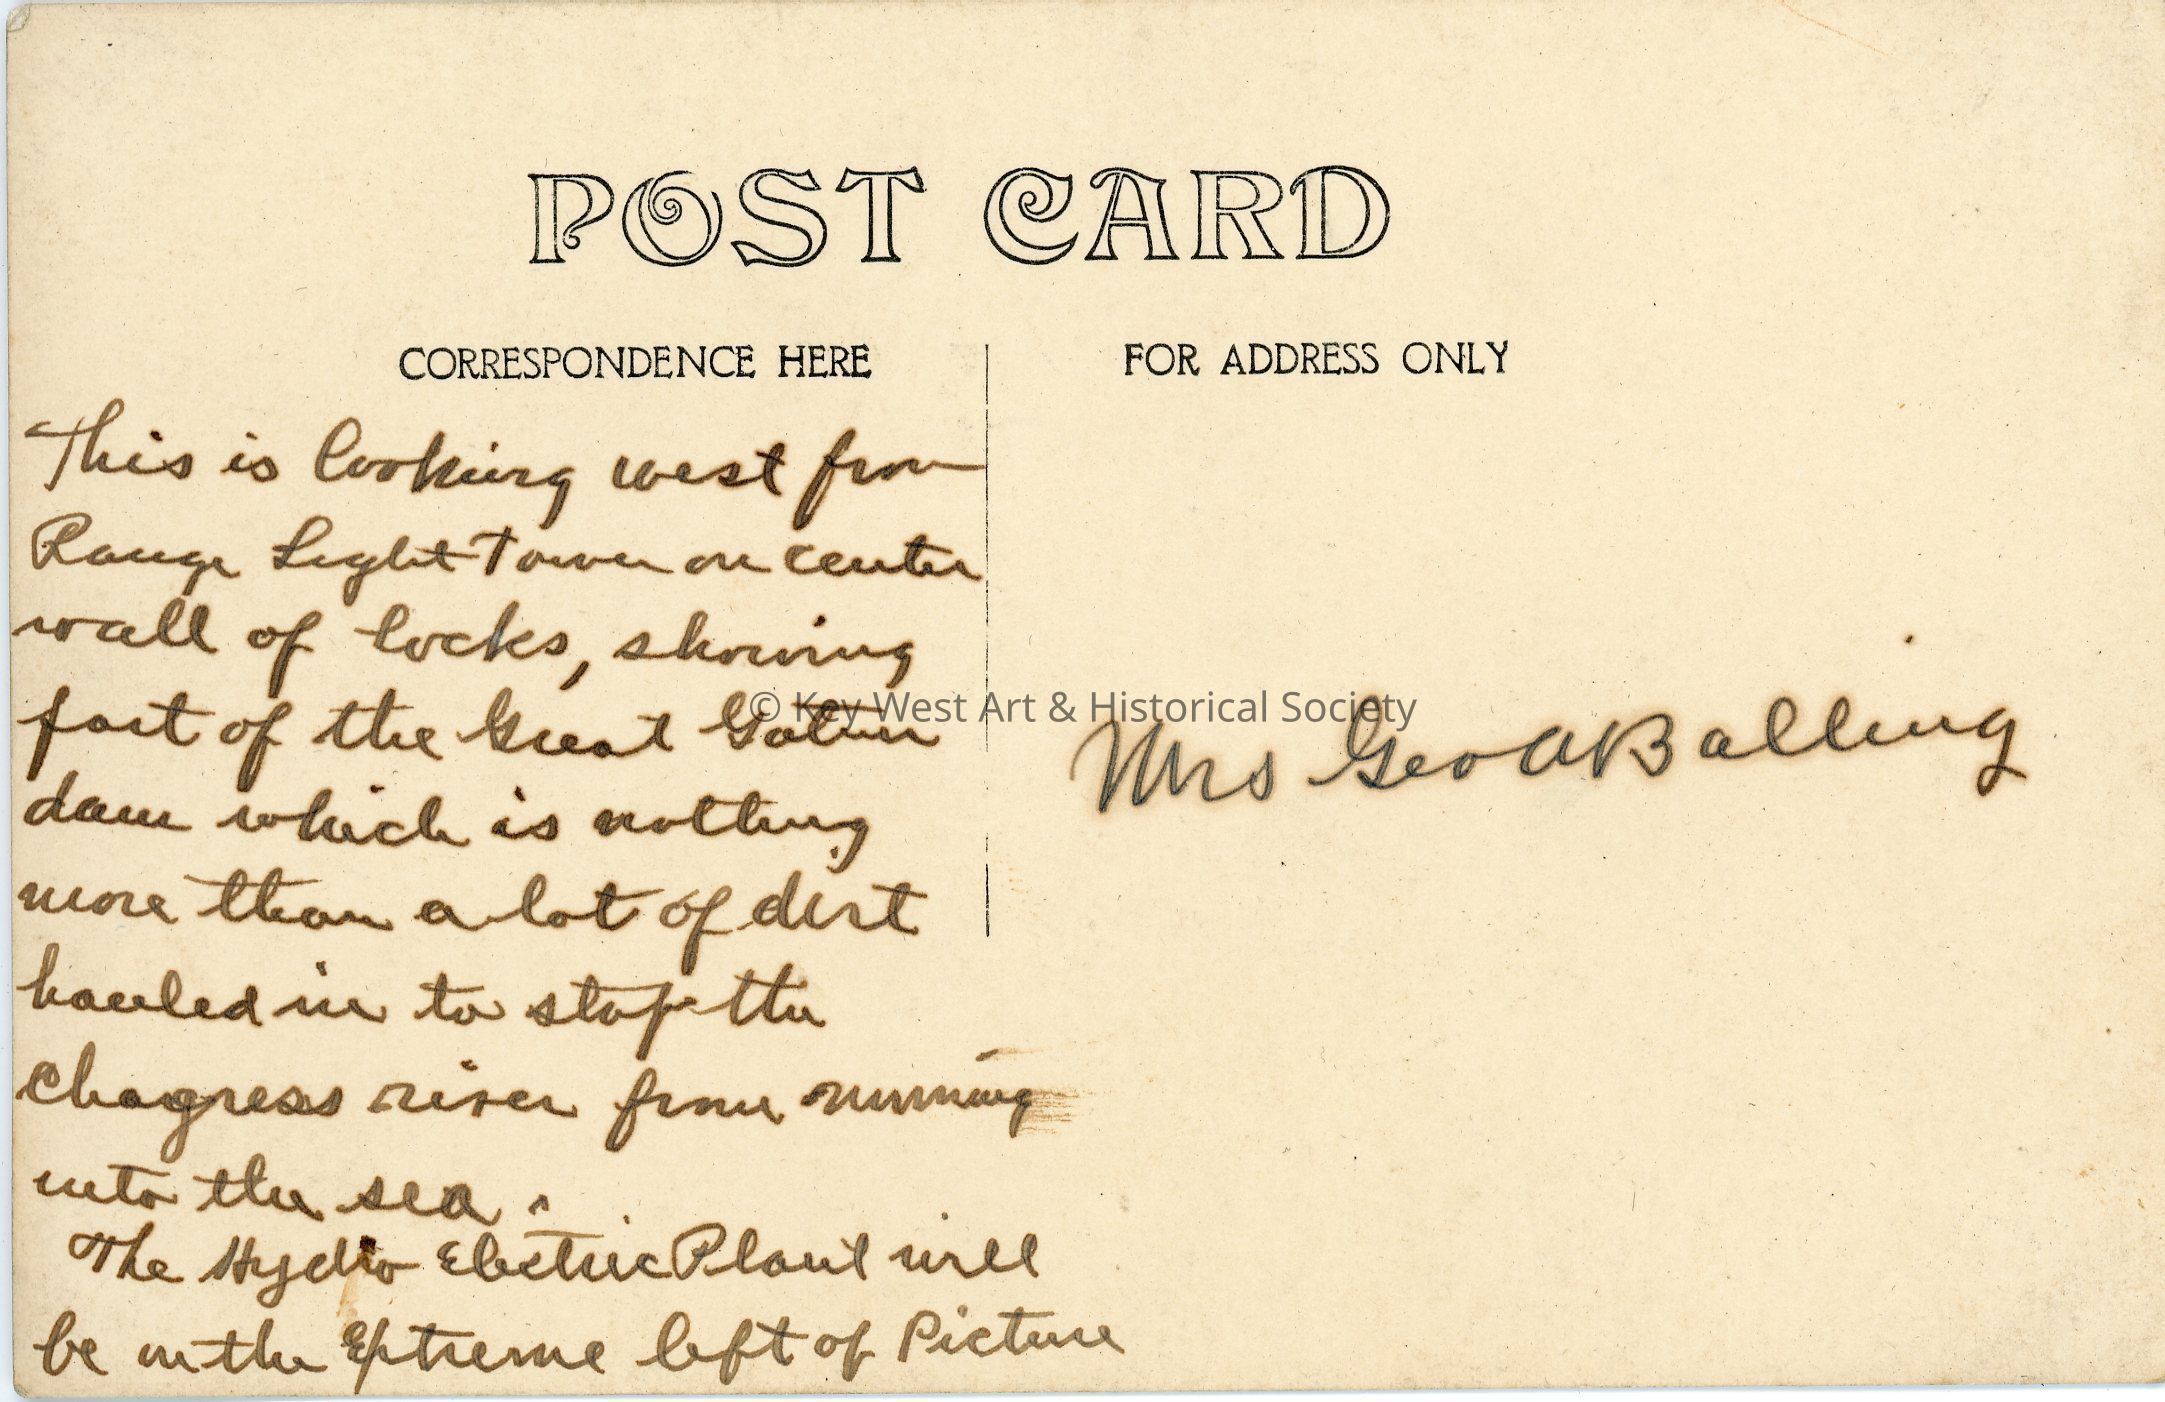 POST CARD
CORRESPONDENCE HERE
FOR ADDRESS ONLY
This is looking west from
Range Light Tower on center
wall of locks, showing
part of the Great Gatun
dam which is nothing
more than a lot of dirt
hauled in to stop the
Chagress river from running
into the sea.
The Hydro Electric Plant will
be on the Extreme left of Picture
Mrs Geo A Balling
© Key West Art & Historical Society